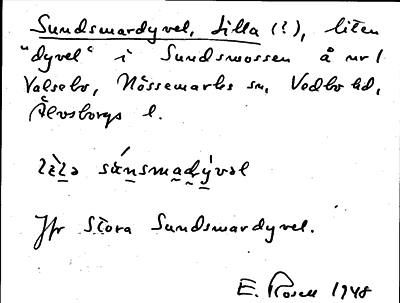 Sundsmardyvel, Lilla (?), liten
"dyvel" i Sundsmossen å nr 1
Valsebo, Nössemarks sn, Vedbo hd,
Älvsborgs l.
Jfr Stora Sundsmardyvel.
E. Rosell 1948